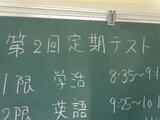 第2回定期テスト
1限 学活 8:35~9:1
2限 英語 9:25~10:1